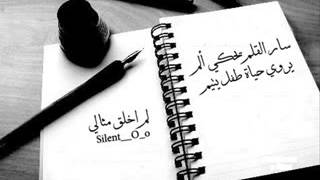 سار القلم يحكي ألم
يروي حياة طفل يتيم
لم اخلق مثالي
Silent__O_o